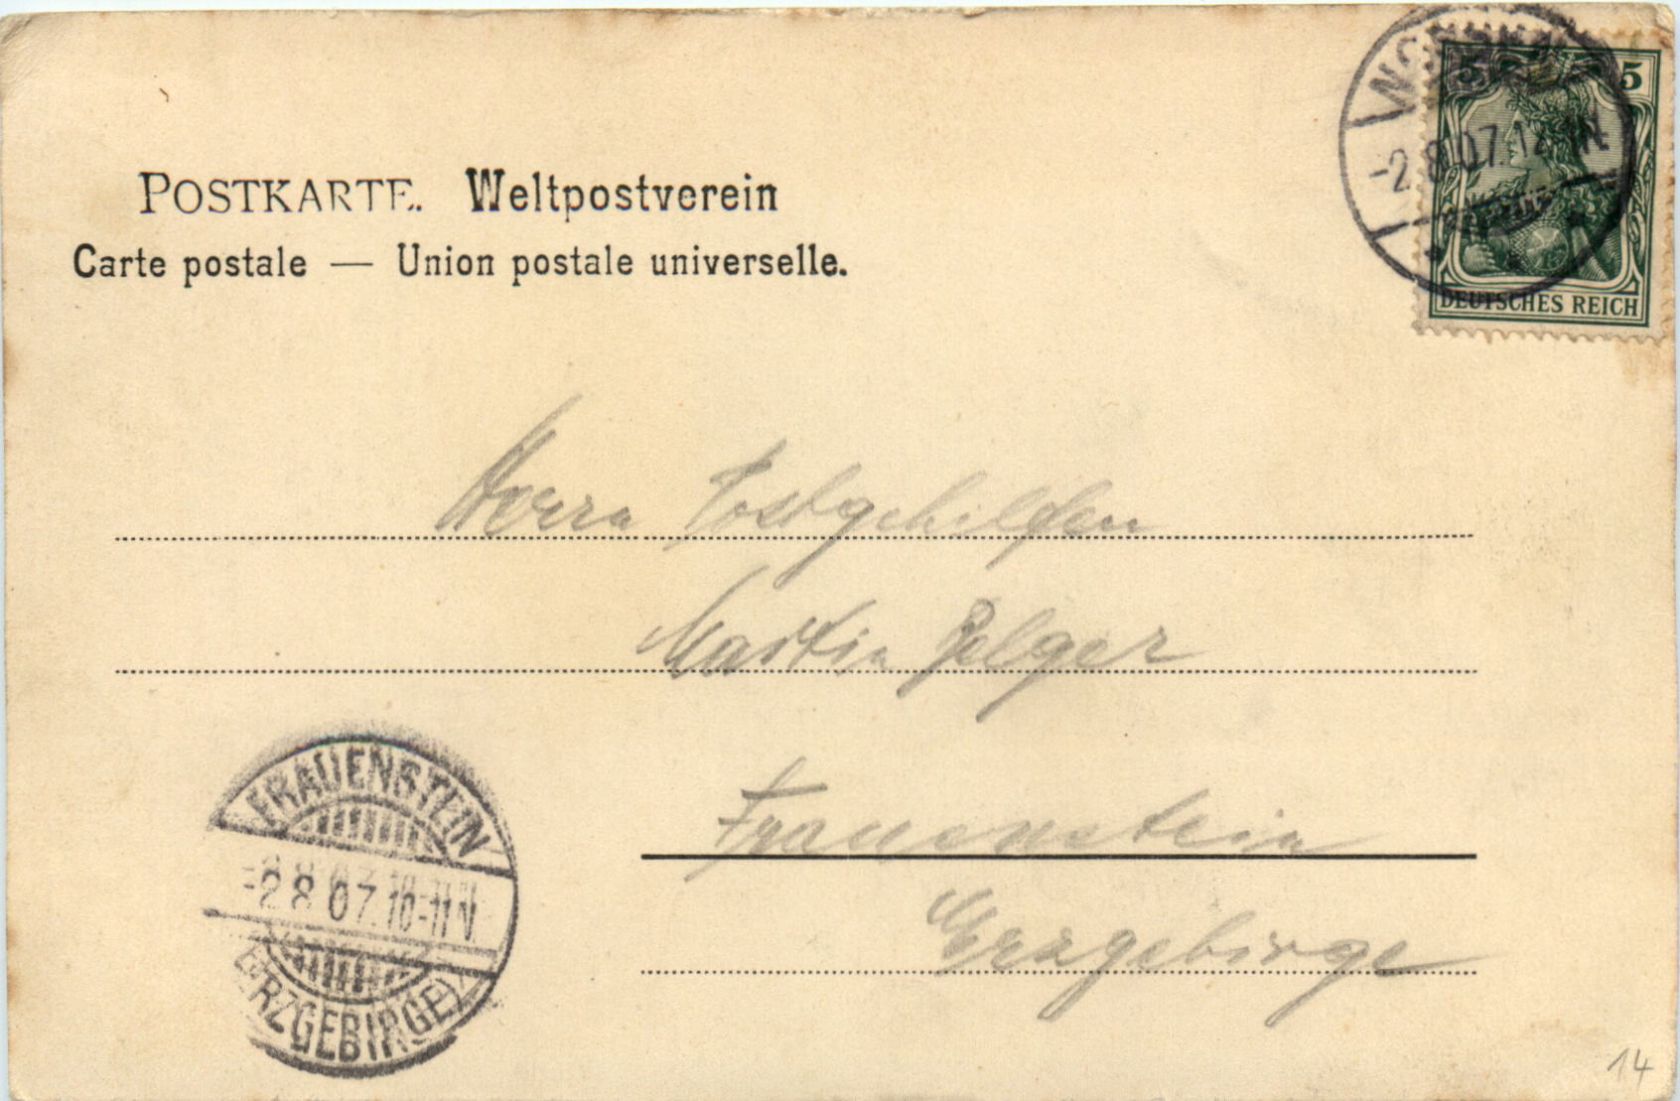 5 5
-2.8.07.12
DEUTSCHES REICH
POSTKARTE. Weltpostverein
Carte postale — Union postale universelle.
Herrn Postgehilfen
Martin
Frauenstein
Erzgebirge
FRAUENSTEIN
-2 8 07. 10-11 V.
(ERZGEBIRGE)
14